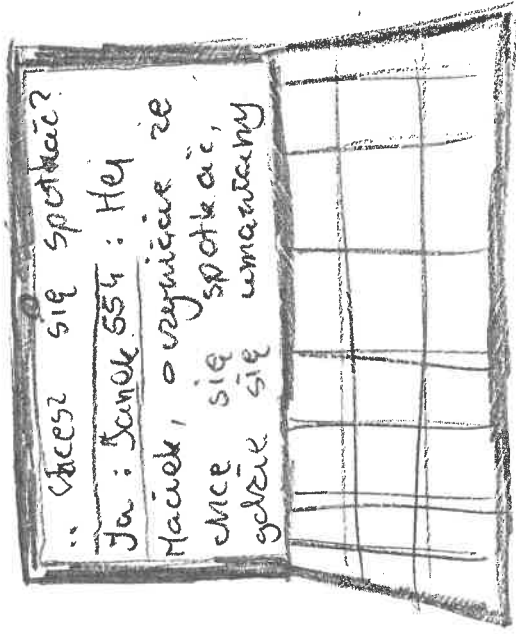 :: chcesz się spotkać?
Ja : Janek 554 : Hej
Maciek, oczywiście że
chce się spotkać,
gdzie się umawiamy